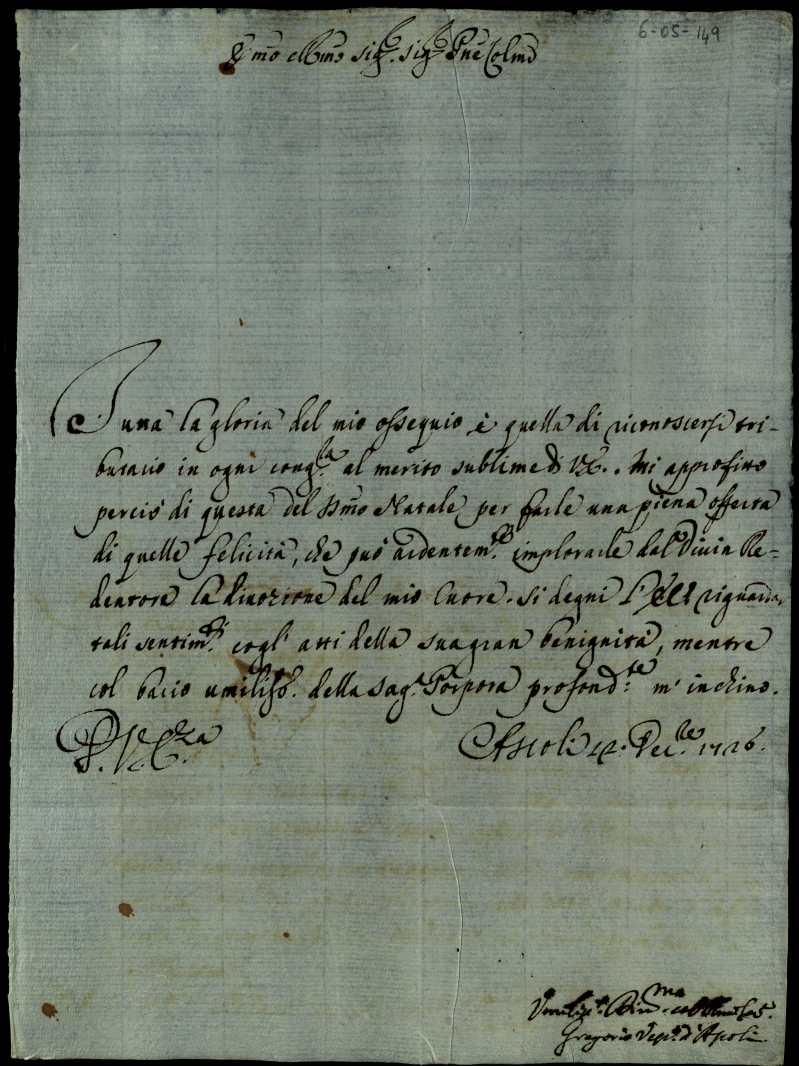 6-05-149
E͞mo e R͞mo Sig.r Sig.r P͞ne Col͞mo
Tutta la gloria del mio ossequio è quella di riconoscersi tri-
butario in ogni cong.ra al merito sublime di VE. Mi approfitto
perciò di questa del S͞smo Natale per farle una piena offerta
di quelle felicità, che può ardentem.te implorarle dal Divin Re-
dentore la divozione del mio Cuore. Si degni l'EV riguardar
tali sentim.ti cogl'atti della sua gran benignità, mentre
col bacio umiliss.o della Sag.a Porpora profond.te m'inchino.
D. V. E.za
Ascoli 12. Dec.bre 1726.
Umilis.o Div.mo ed
Gregorio Vesc.o d'Ascoli